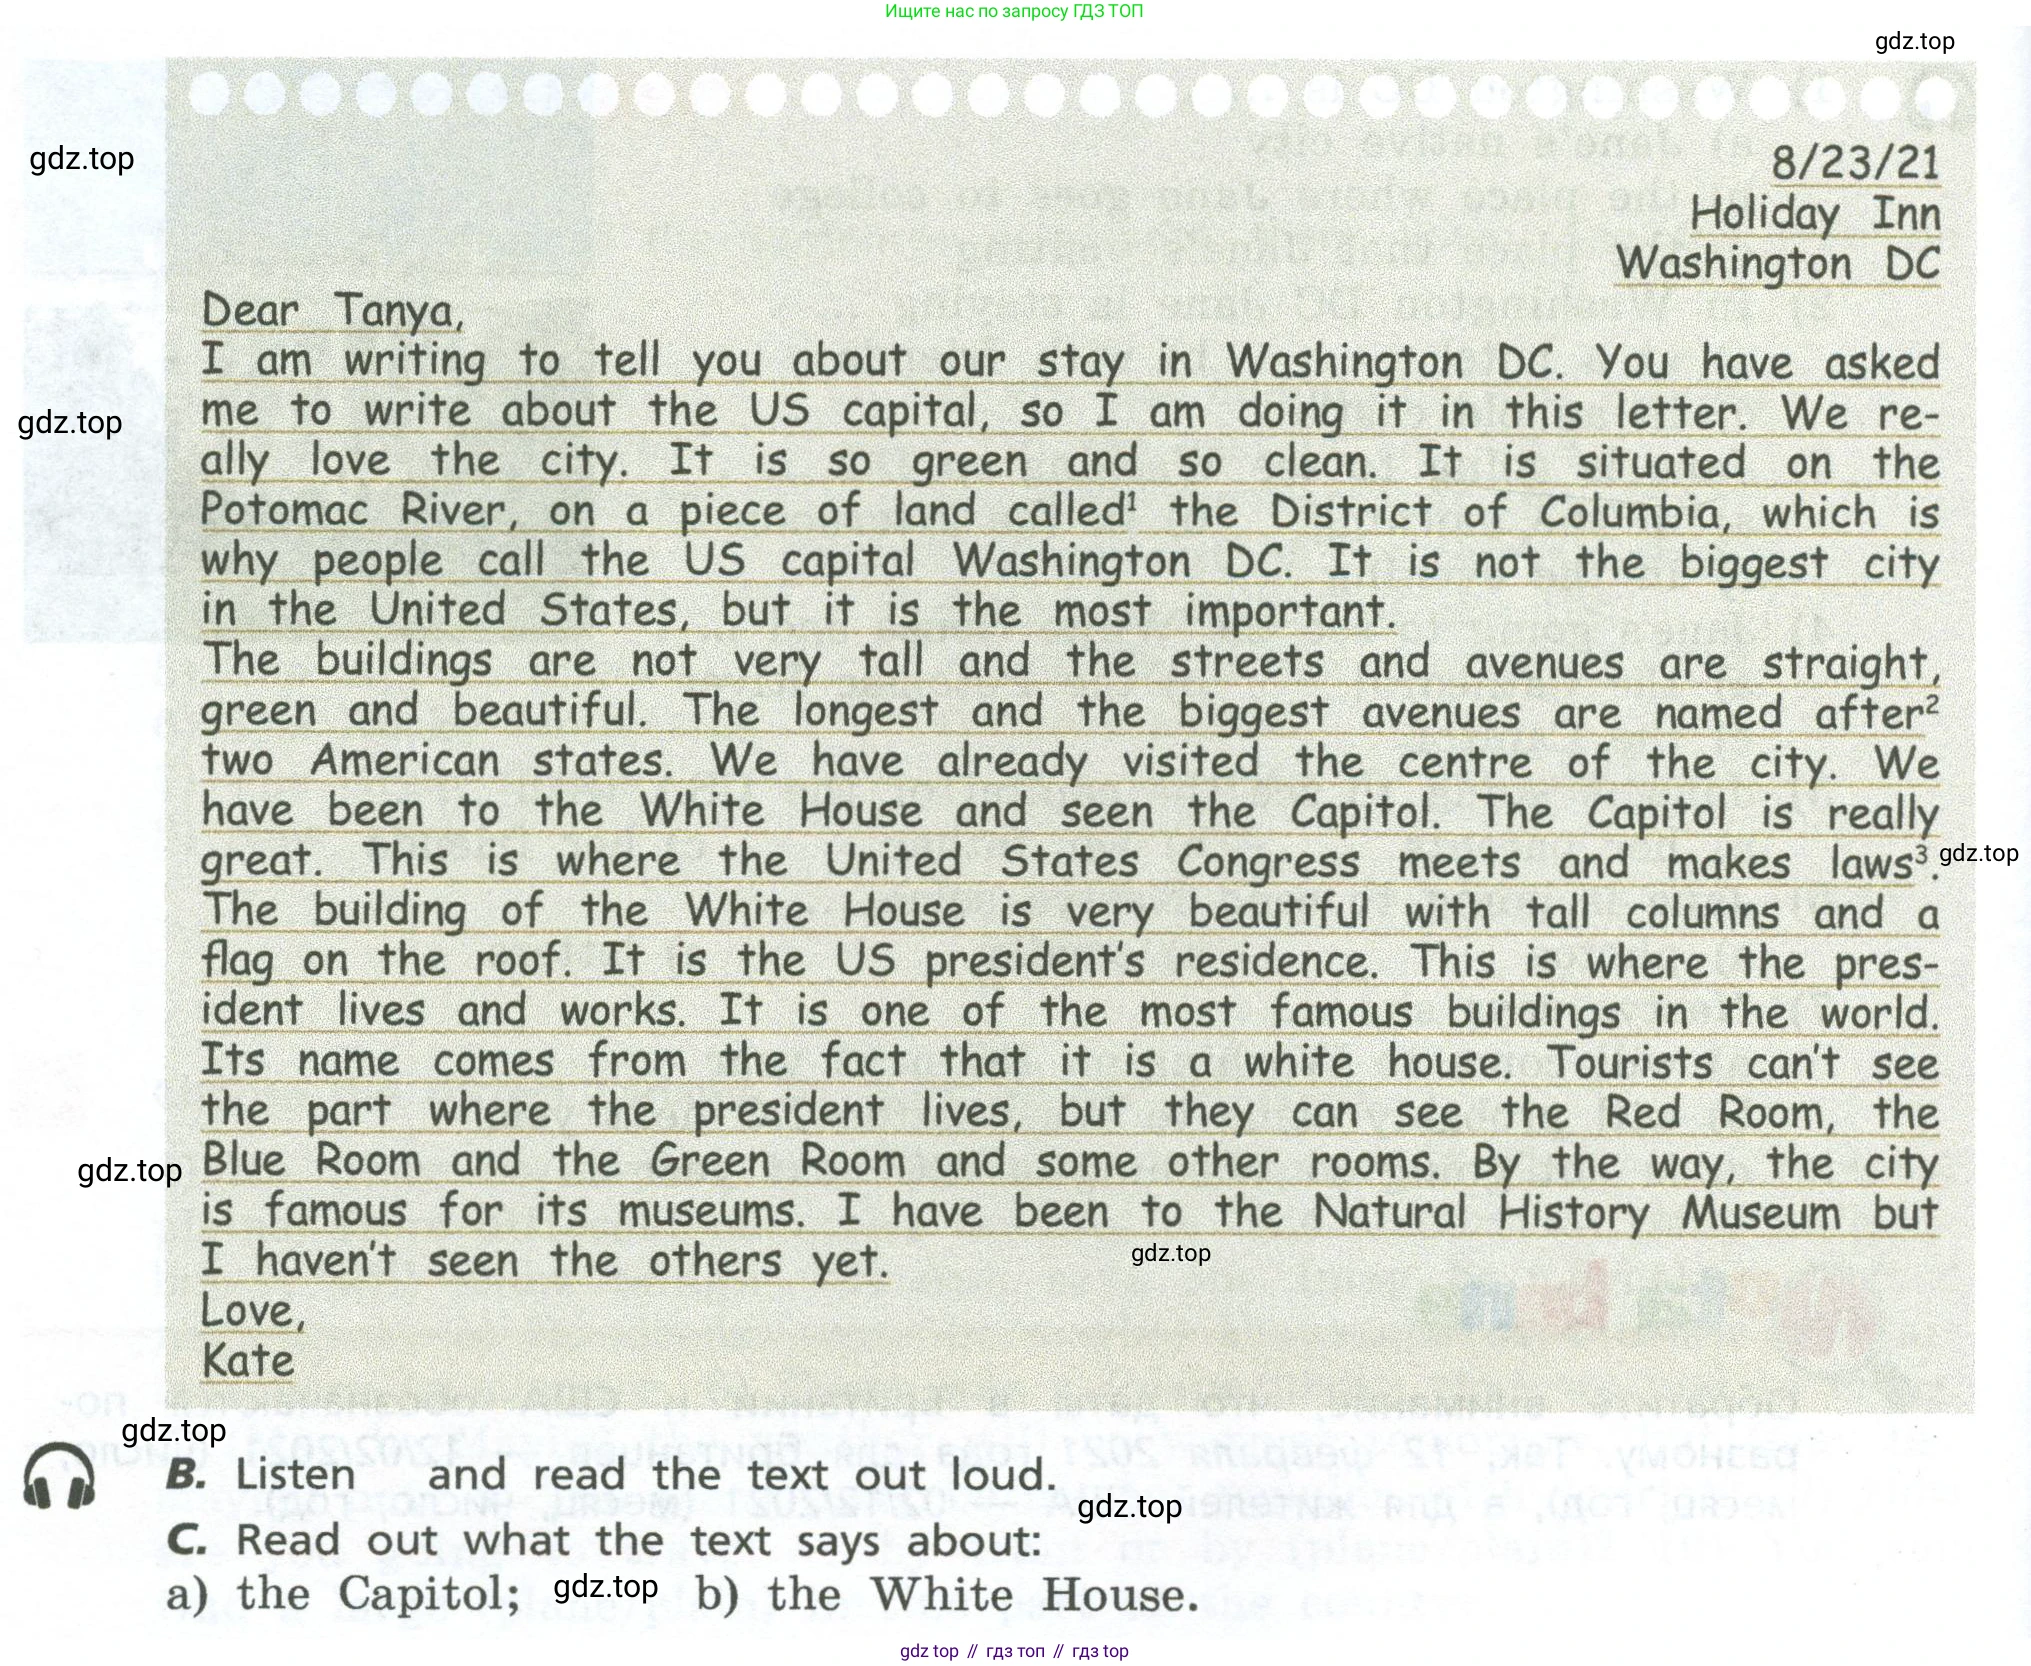 Ищите нас по запросу ГДЗ ТОП
gdz.top
gdz.top
8/23/21
Holiday Inn
Washington DC
Dear Tanya,
I am writing to tell you about our stay in Washington DC. You have asked
gdz.top
me to write about the US capital, so I am doing it in this letter. We re-
ally love the city. It is so green and so clean. It is situated on the
Potomac River, on a piece of land called¹ the District of Columbia, which is
why people call the US capital Washington DC. It is not the biggest city
in the United States, but it is the most important.
The buildings are not very tall and the streets and avenues are straight,
green and beautiful. The longest and the biggest avenues are named after²
two American states. We have already visited the centre of the city. We
have been to the White House and seen the Capitol. The Capitol is really
great. This is where the United States Congress meets and makes laws³.
gdz.top
The building of the White House is very beautiful with tall columns and a
flag on the roof. It is the US president's residence. This is where the pres-
ident lives and works. It is one of the most famous buildings in the world.
Its name comes from the fact that it is a white house. Tourists can't see
the part where the president lives, but they can see the Red Room, the
gdz.top
Blue Room and the Green Room and some other rooms. By the way, the city
is famous for its museums. I have been to the Natural History Museum but
I haven't seen the others yet.
gdz.top
Love,
Kate
gdz.top
B. Listen and read the text out loud.
gdz.top
C. Read out what the text says about:
a) the Capitol; gdz.top b) the White House.
gdz top // гдз топ // гдз top